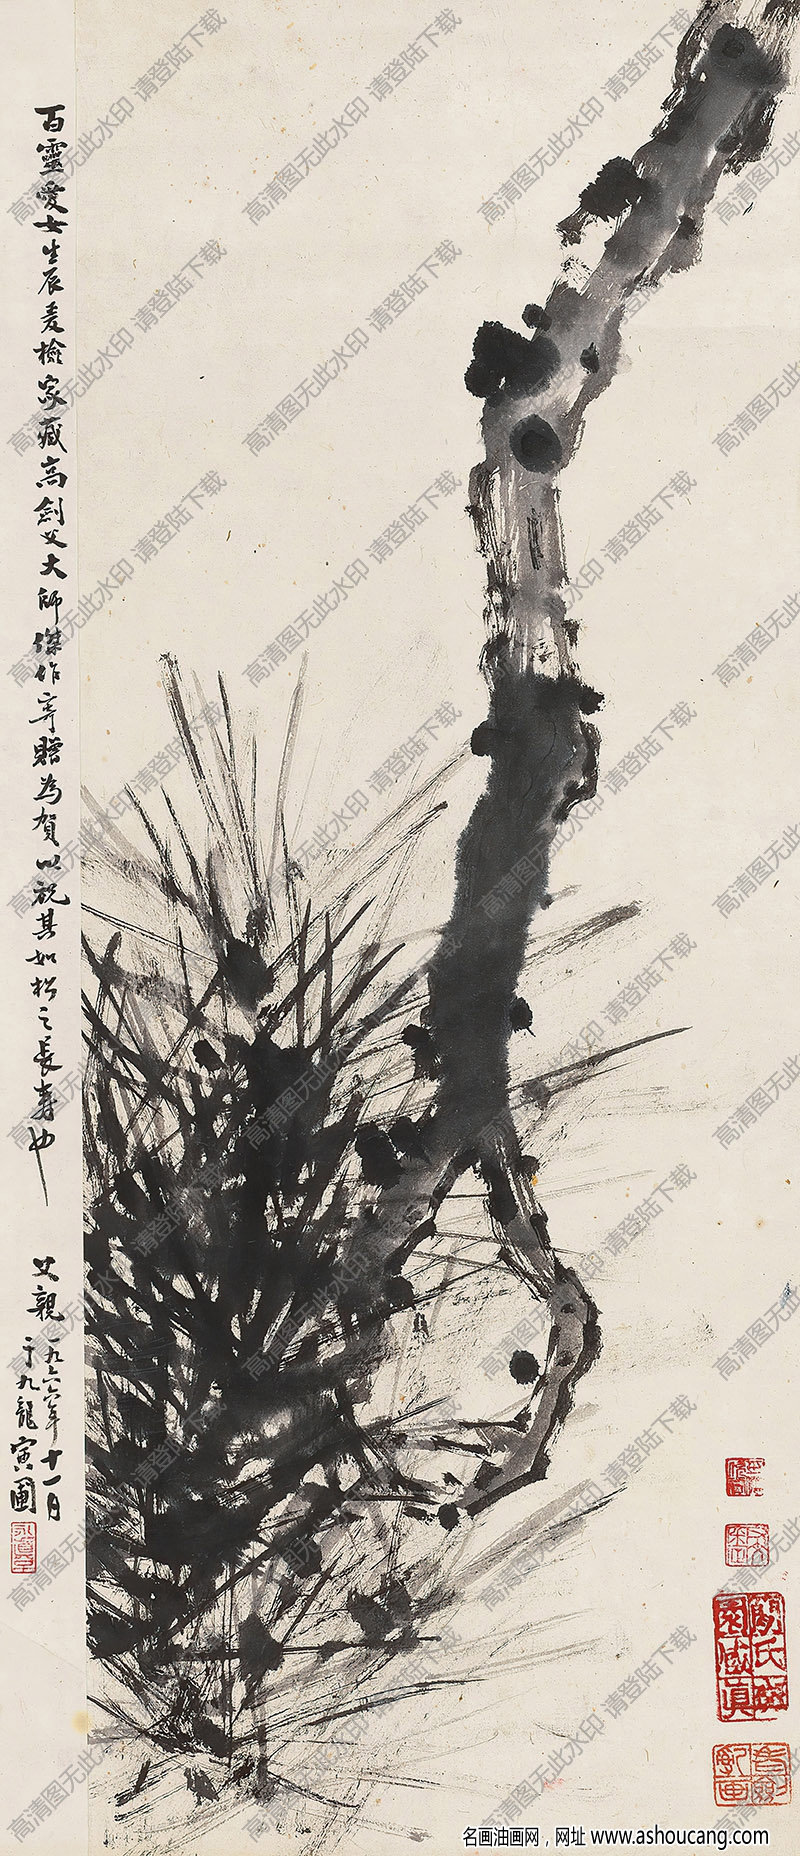 百靈愛女生辰爰檢家藏高劍父大師傑作寄贈為賀以祝其如松之長壽也
父親
一九六六年十一月
于九龍寅圃
高清图无此水印 请登陆下载
名画油画网，网址 www.ashoucang.com